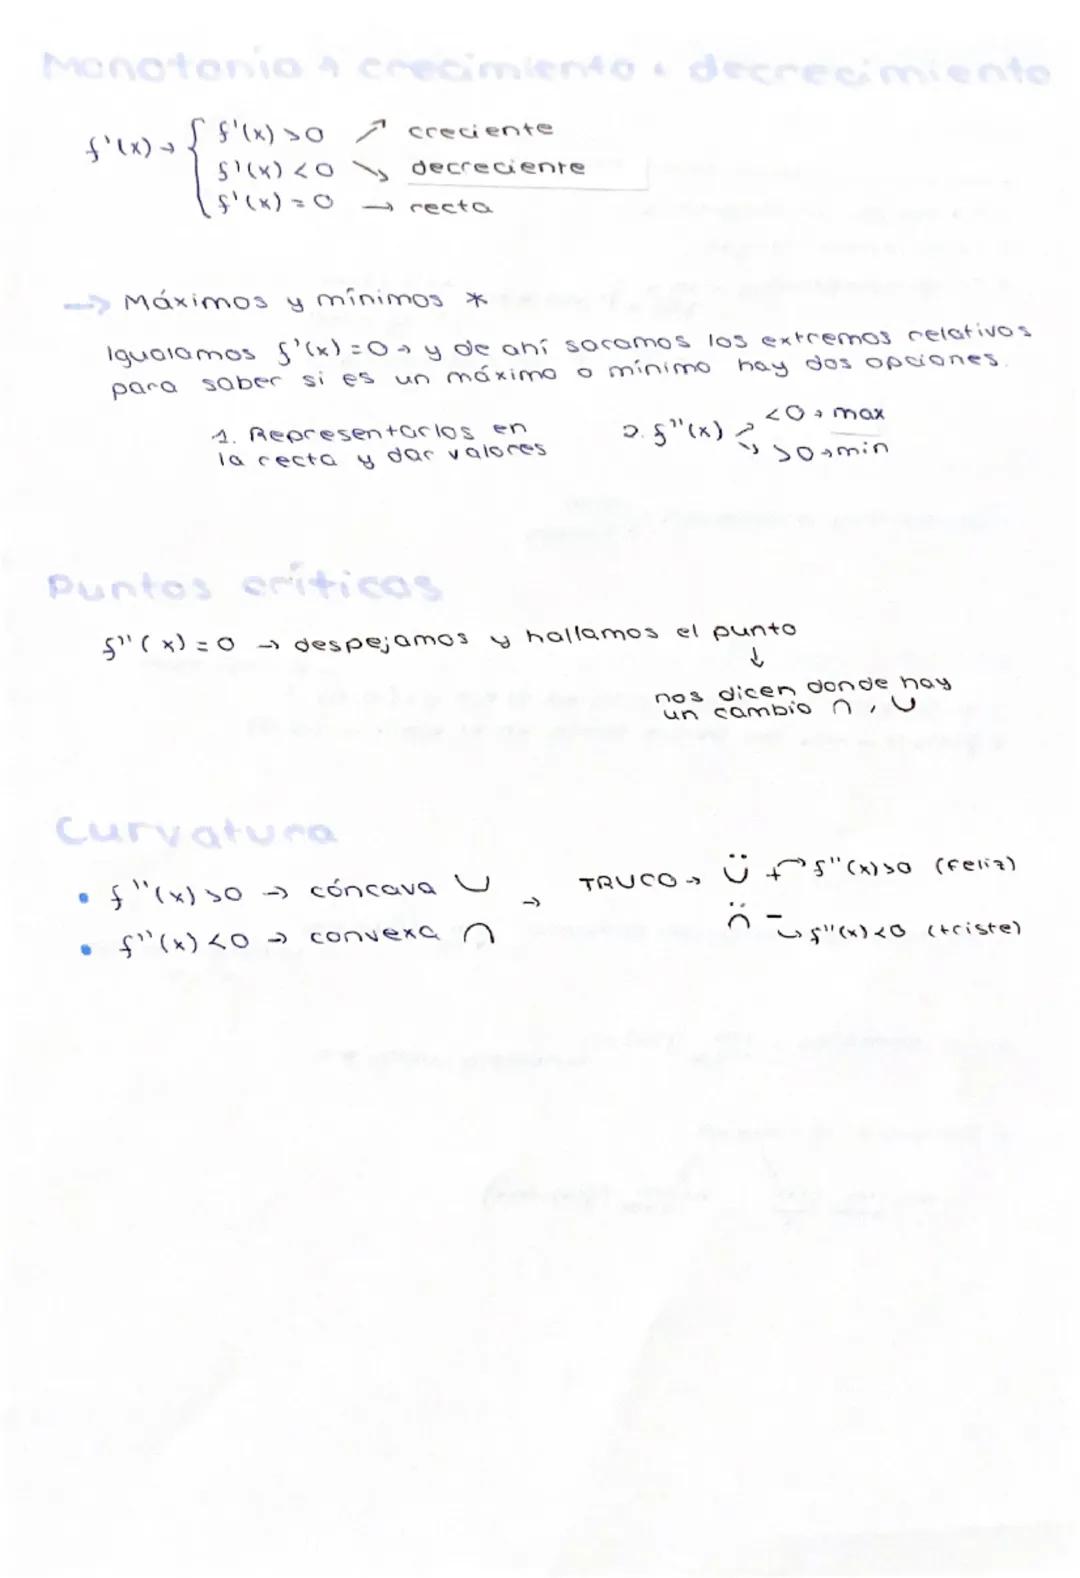 Monotonía → crecimiento, decrecimiento
f'(x) → { f'(x) >0 ↗ creciente
f'(x) <0 ↘ decreciente
f'(x) = 0 → recta
→ Máximos y mínimos *
Igualamos f'(x) = 0 → y de ahí sacamos los extremos relativos
para saber si es un máximo o mínimo hay dos opciones.
1. Representarlos en
la recta y dar valores
2. f''(x) ↗ <0 → max
↘ >0 → min
Puntos críticos
f''(x) = 0 → despejamos y hallamos el punto
↓
nos dicen donde hay
un cambio ∩, ∪
Curvatura
• f''(x) >0 → cóncava ∪
• f''(x) <0 → convexa ∩
→ TRUCO → ∪̈ + → f''(x)>0 (feliz)
∩̈ - → f''(x)<0 (triste)